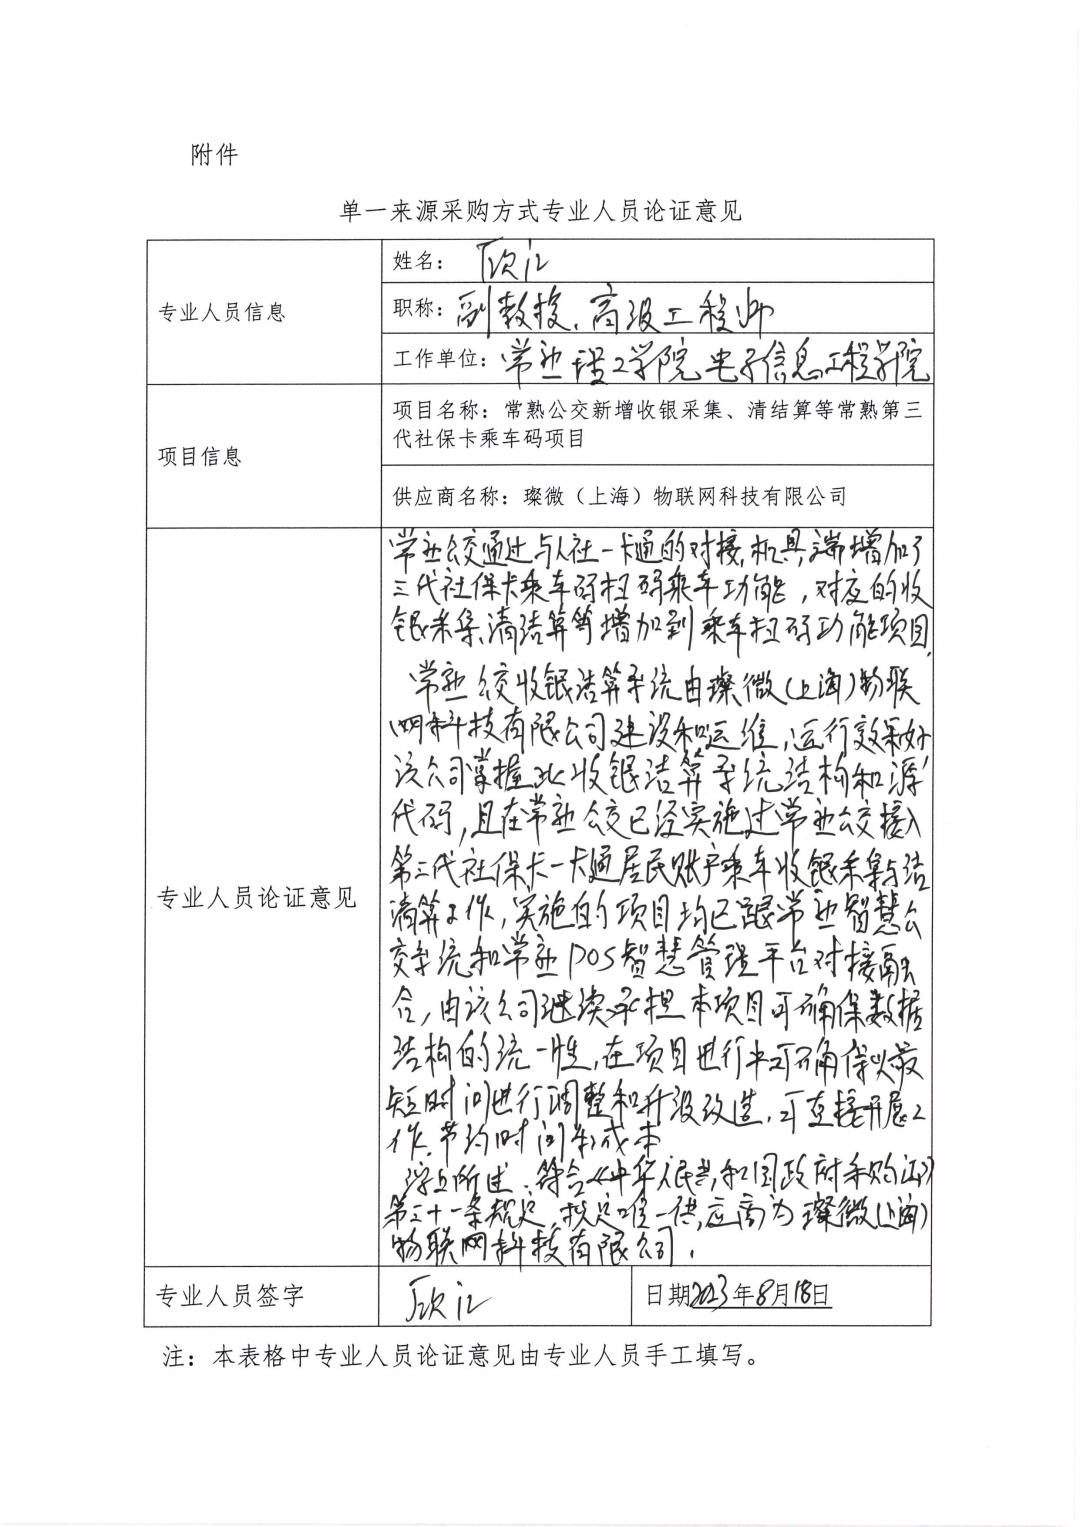 附件
单一来源采购方式专业人员论证意见
专业人员信息
姓名：
职称：副教授、高级工程师
工作单位：常熟理工学院电子信息工程学院
项目信息
项目名称：常熟公交新增收银采集、清结算等常熟第三
代社保卡乘车码项目
供应商名称：璨微（上海）物联网科技有限公司
专业人员论证意见
常熟公交通过与人社一卡通的对接，机具端增加了
三代社保卡乘车码扫码乘车功能，对应的收
银采集、清结算等增加到乘车扫码功能项目。
常熟公交收银结算系统由璨微（上海）物联
网科技有限公司建设和运维，运行效果好
该公司掌握此收银结算系统结构和源
代码，且在常熟公交已经实施过常熟公交接入
第三代社保卡一卡通居民账户乘车收银采集与结
清算工作，实施的项目均已跟常熟智慧公
交系统和常熟POS智慧管理平台对接融
合，由该公司继续承担本项目可确保数据
结构的统一性，在项目进行中可确保以最
短时间进行调整和升级改造，可直接开展工
作，节约时间和成本
综上所述：符合《中华人民共和国政府采购法》
第三十一条规定，拟定唯一供应商为璨微（上海）
物联网科技有限公司。
专业人员签字
日期2023年8月18日
注：本表格中专业人员论证意见由专业人员手工填写。